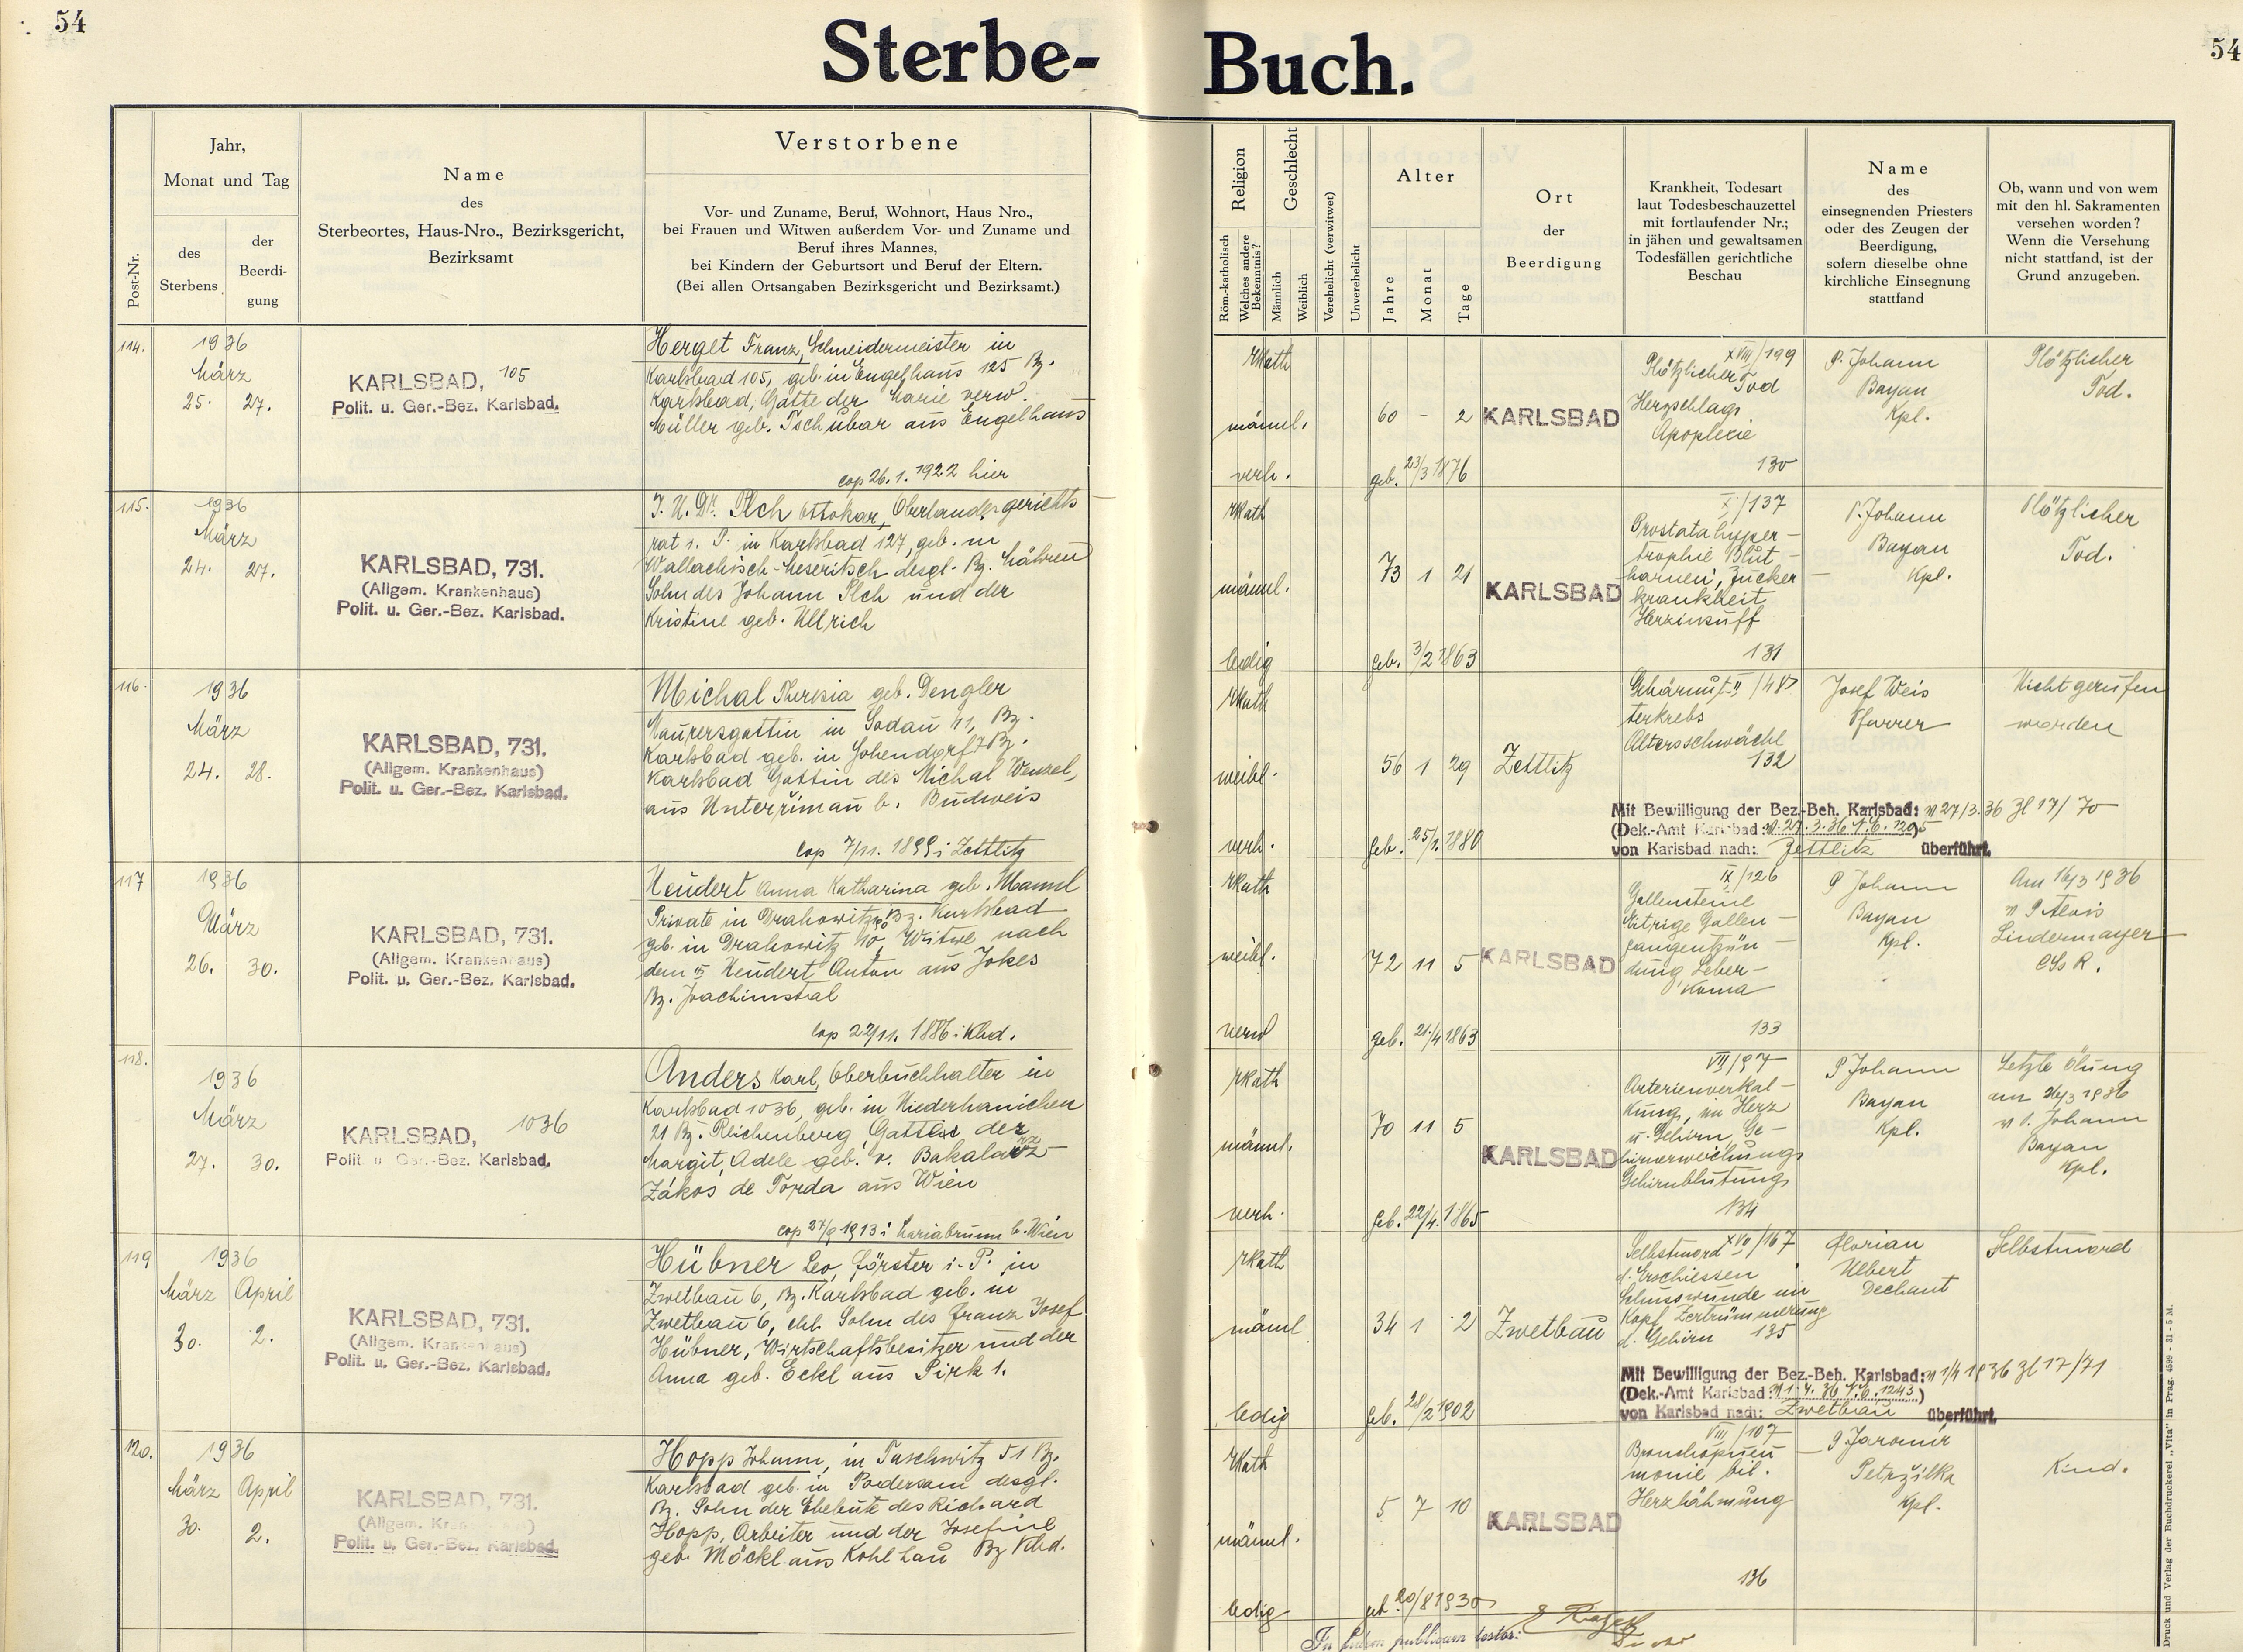 54
Sterbe-
Buch.
54
Post-Nr.
Jahr,
Monat und Tag
des
Sterbens
der
Beerdi-
gung
Name
des
Sterbeortes, Haus-Nro., Bezirksgericht,
Bezirksamt
Verstorbene
Vor- und Zuname, Beruf, Wohnort, Haus Nro.,
bei Frauen und Witwen außerdem Vor- und Zuname und
Beruf ihres Mannes,
bei Kindern der Geburtsort und Beruf der Eltern.
(Bei allen Ortsangaben Bezirksgericht und Bezirksamt.)
Religion
Röm.-katholisch
Welches andere
Bekenntnis?
Geschlecht
Männlich
Weiblich
Verehelicht (verwitwet)
Unverehelicht
Alter
Jahre
Monat
Tage
Ort
der
Beerdigung
Krankheit, Todesart
laut Todesbeschauzettel
mit fortlaufender Nr.;
in jähen und gewaltsamen
Todesfällen gerichtliche
Beschau
Name
des
einsegnenden Priesters
oder des Zeugen der
Beerdigung,
sofern dieselbe ohne
kirchliche Einsegnung
stattfand
Ob, wann und von wem
mit den hl. Sakramenten
versehen worden?
Wenn die Versehung
nicht stattfand, ist der
Grund anzugeben.
114.
1936
März
25. 27.
KARLSBAD, 105
Polit. u. Ger.-Bez. Karlsbad.
Herget Franz, Schneidermeister in
Karlsbad 105, geb. in Engelhaus 125 Bz.
Karlsbad, Gatte der Marie verw.
Müller geb. Tschubar aus Engelhaus
cop 26. 1. 1922 hier
rkath
männl.
verh.
60 - 2
geb. 23/3 1876
KARLSBAD
XVIII/199
Plötzlicher Tod
Herzschlag
Apoplexie
130
P. Johann
Bayan
Kpl.
Plötzlicher
Tod.
115.
1936
März
24. 27.
KARLSBAD, 731.
(Allgem. Krankenhaus)
Polit. u. Ger.-Bez. Karlsbad.
J. U. Dr. Plch Ottokar, Oberlandesgerichts
rat i. P. in Karlsbad 127, geb. in
Wallachisch-Meseritsch desgl. Bz. Mähren
Sohn des Johann Plch und der
Kristine geb. Ullrich
rkath
männl.
ledig
73 1 21
geb. 3/2 1863
KARLSBAD
X/137
Prostatahyper-
trophie Blut-
harnen, Zucker-
krankheit
Herzinsuff
131
P. Johann
Bayan
Kpl.
Plötzlicher
Tod.
116.
1936
März
24. 28.
KARLSBAD, 731.
(Allgem. Krankenhaus)
Polit. u. Ger.-Bez. Karlsbad.
Michal Theresia geb. Dengler
Maurersgattin in Sodau 11, Bz.
Karlsbad geb. in Johendorf 7 Bz.
Karlsbad Gattin des Michal Wenzel,
aus Unterřimau b. Budweis
cop 7/11. 1899 i Zettlitz
rkath
weibl.
verh.
56 1 29
geb. 25/1. 1880
Zettlitz
Gebärmut-
terkrebs
Altersschwäche
132
Josef Weis
Pfarrer
Nicht gerufen
worden
Mit Bewilligung der Bez.-Beh. Karlsbad: v 27/3.36 Zl 17/70
(Dek.-Amt Karlsbad:
von Karlsbad nach: Zettlitz überführt.
117
1936
März
26. 30.
KARLSBAD, 731.
(Allgem. Krankenhaus)
Polit. u. Ger.-Bez. Karlsbad.
Neudert Anna Katharina geb. Mannl
Private in Drahowitz Bz. Karlsbad
geb. in Drahowitz 10, Witwe nach
dem Neudert Anton aus Jokes
Bz. Joachimstal
cop 22/11. 1886 i Kbd.
rkath
weibl.
verw
72 11 5
geb. 21/4 1863
KARLSBAD
IX/126
Gallensteine
Eitrige Gallen-
gangentzün-
dung Leber-
Koma
133
P Johann
Bayan
Kpl.
Am 16/3 1936
v P Alois
Lindermayer
CSsR.
118.
1936
März
27. 30.
KARLSBAD, 1036
Polit. u. Ger.-Bez. Karlsbad.
Anders Karl, Oberbuchhalter in
Karlsbad 1036, geb. in Niederhanichen
21 Bz. Reichenberg, Gatte der
Margit Adele geb. v. Bakalarz
Zákos de Torda aus Wien
cop 27/9 1913 i Mariabrunn b. Wien
rkath
männl.
verh.
70 11 5
geb. 22/4. 1865
KARLSBAD
VII/97
Arterienverkal-
kung, im Herz
u. Gehirn, Ge-
hirnerweichung
Gehirnblutung
134
P Johann
Bayan
Kpl.
Letzte Ölung
am 26/3 1936
v P. Johann
Bayan
Kpl.
119
1936
März April
30. 2.
KARLSBAD, 731.
(Allgem. Krankenhaus)
Polit. u. Ger.-Bez. Karlsbad.
Hübner Leo, Förster i. P. in
Zwetbau 6, Bz. Karlsbad geb. in
Zwetbau 6, ehl. Sohn des Franz Josef
Hübner, Wirtschaftsbesitzer und der
Anna geb. Eckl aus Pirk 1.
rkath
männl
ledig
34 1 2
geb. 28/2 1902
Zwetbau
Selbstmord XVII/167
d. Erschiessen
Schusswunde im
Kopf Zertrümmerung
d. Gehirn 135
Florian
Uebert
Dechant
Selbstmord
Mit Bewilligung der Bez.-Beh. Karlsbad: v 1/4 1936 Zl 17/71
(Dek.-Amt Karlsbad: v 1. 4. 36 N.E. 1243.)
von Karlsbad nach: Zwetbau überführt.
120.
1936
März April
30. 2.
KARLSBAD, 731.
(Allgem. Krankenhaus)
Polit. u. Ger.-Bez. Karlsbad.
Hopp Johann, in Taschwitz 51 Bz.
Karlsbad geb. in Podersam desgl.
Bz. Sohn der Eheleute des Richard
Hopp, Arbeiter und der Josefine
geb. Möckl aus Kohlhau Bz Kbd.
rkath
männl.
ledig
5 7 10
geb 20/8 1930
KARLSBAD
VIII/107
Bronchopneu
monie bil.
Herzlähmung
136
P Jaromir
Petržilka
Kpl.
Kind.
In fidem publicam testor:
Druck und Verlag der Buchdruckerei „Vita" in Prag. 4599 - 31 - 5 M.